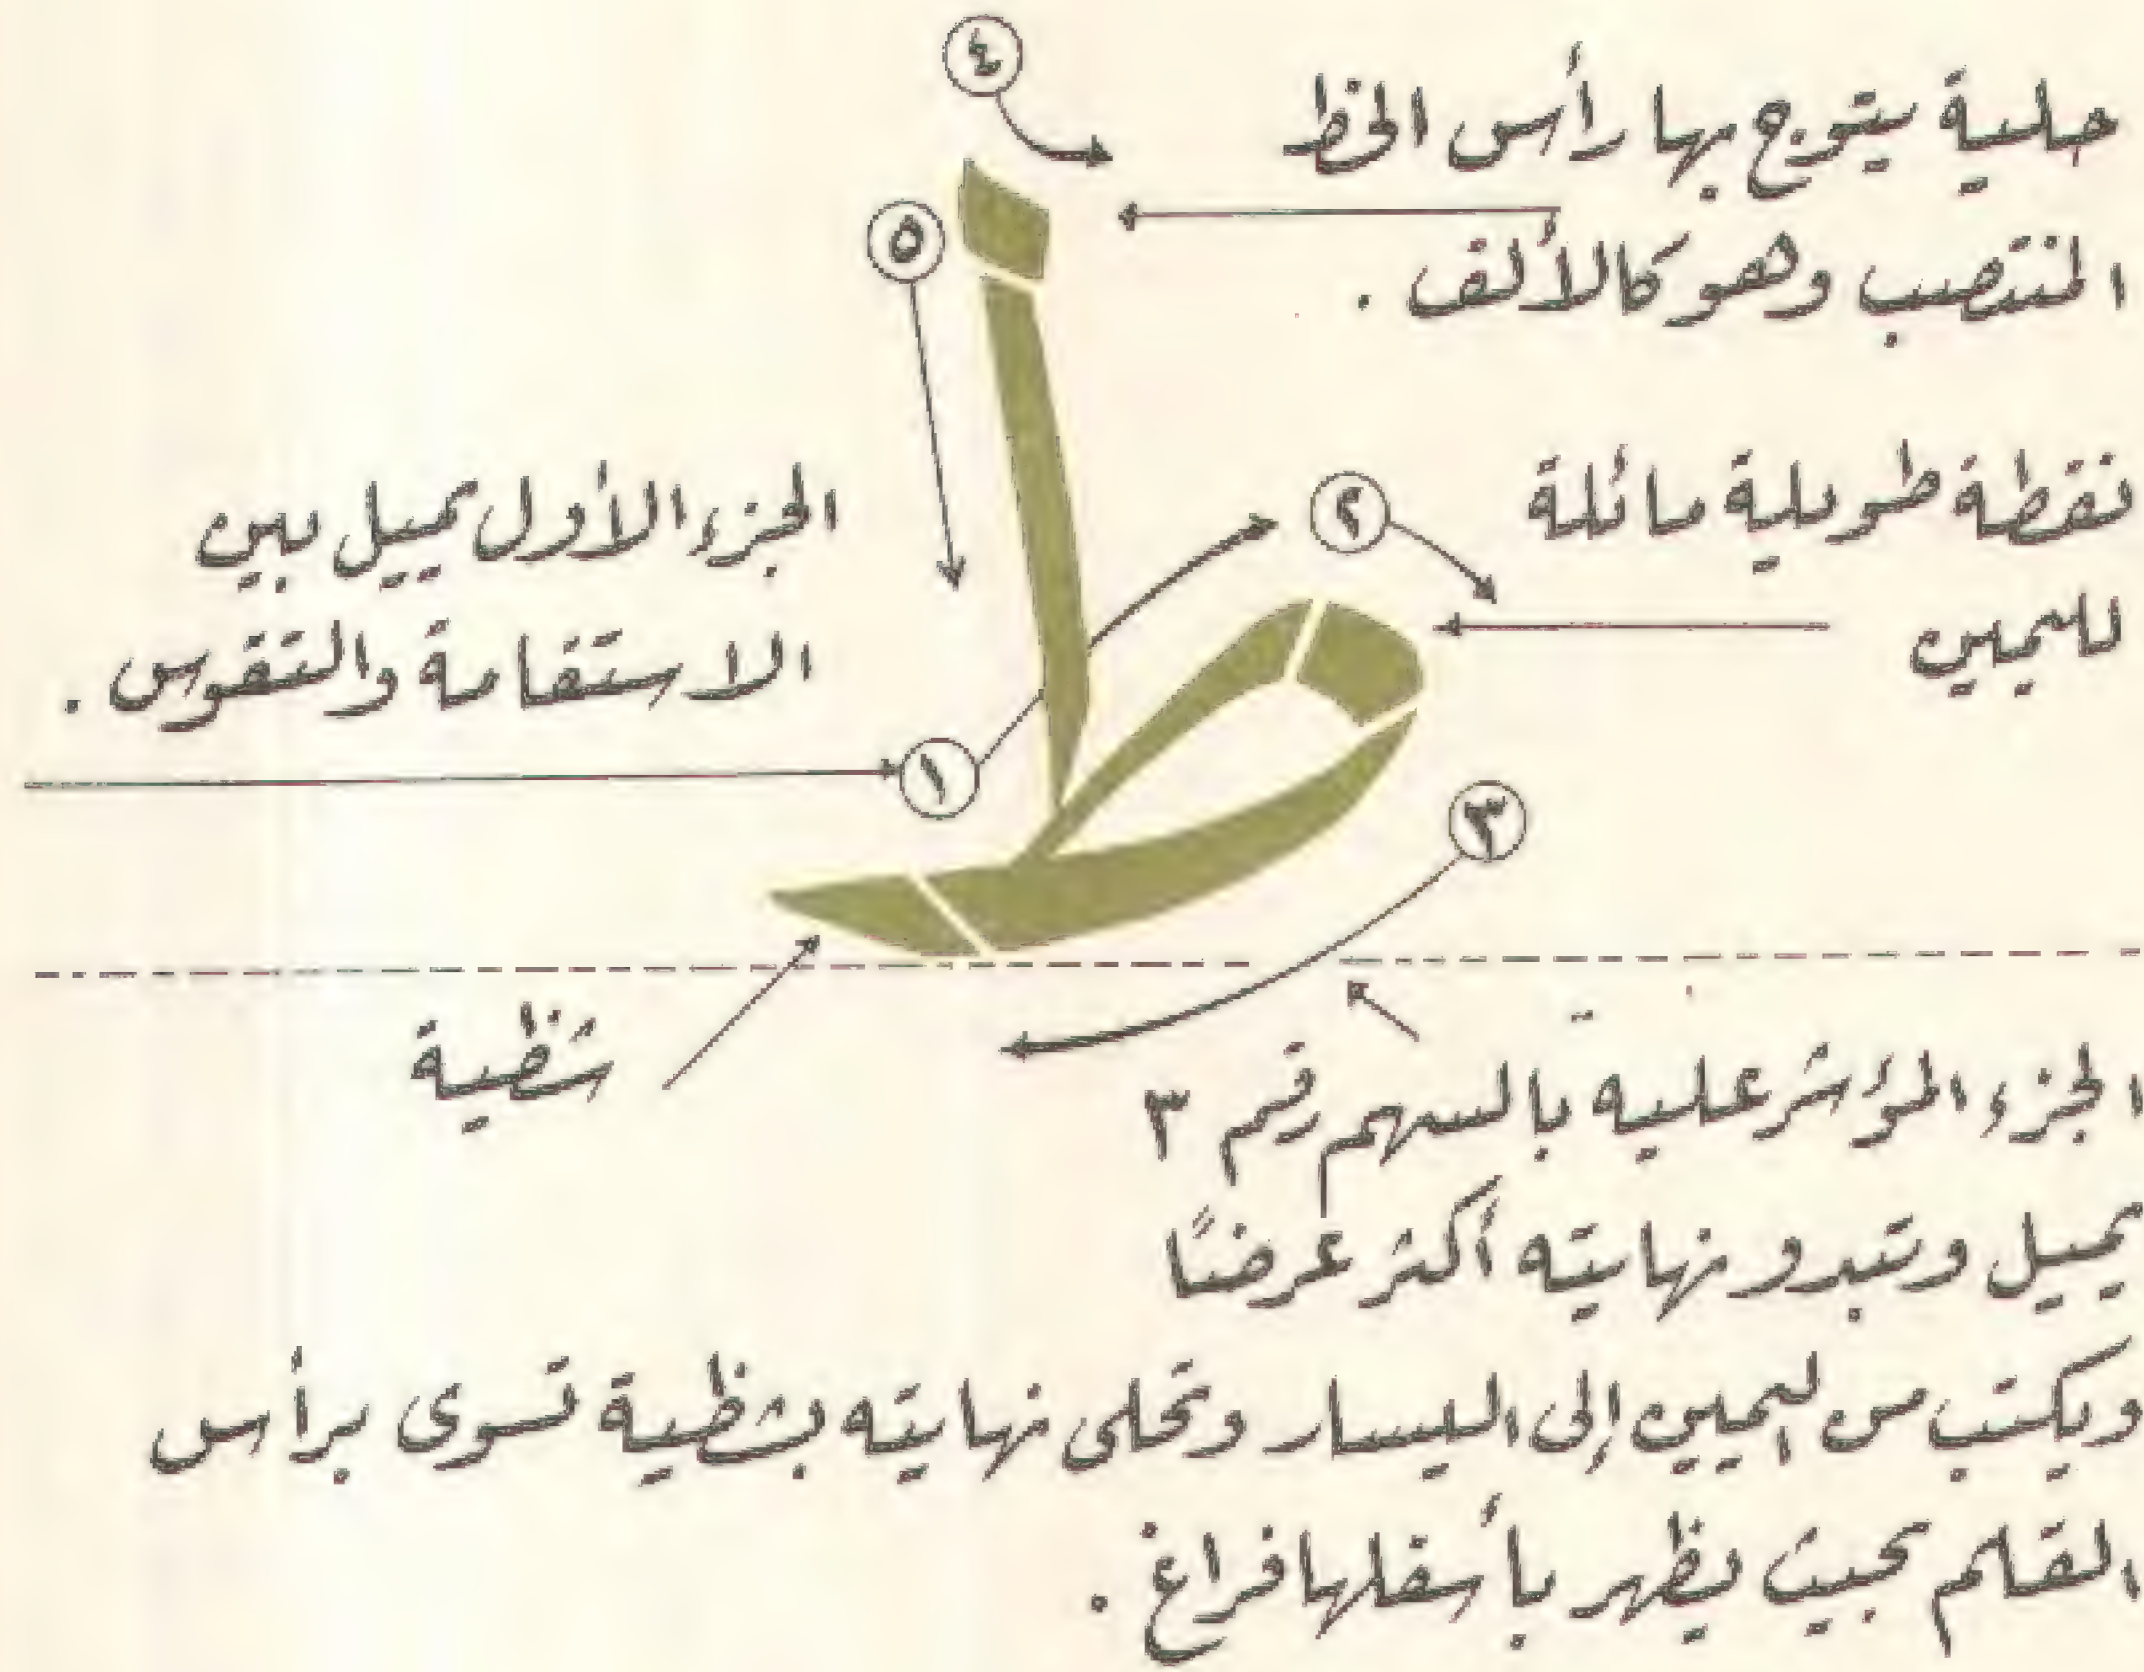 ٤
حلية يتوج بها رأس الخط
المنتصب وهو كالألف .
٥
نقطة طويلة مائلة
للىمين
٢
الجزء الأول يميل بين
الاستقامة والتقوس .
١
٣
شظية
الجزء المؤشر عليه بالسهم رقم ٣
يميل وتبدو نهايته أكثر عرضًا
ويكتب من اليمين إلى اليسار وتحلى نهايته بشظية تسوى برأس
القلم بحيث يظهر بأسفلها فراغ .